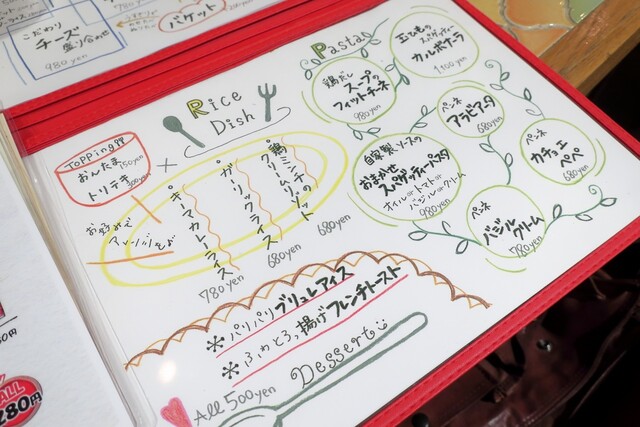 こだわり
チーズ
盛り合わせ
980yen
バケット
Rice
Dish
TOPPing
おんたま 150yen
トリテキ 300yen
×
お好みで
アレンジを♪
鶏ミンチの
クリームリゾット
680yen
ガーリックライス
680yen
キーマカレーライス
780yen
Pasta
鶏だし
スープの
フィットチーネ
980yen
玉ひもの
スパゲッティー
カルボナーラ
1,100yen
ペンネ
アラビアタ
680yen
ペンネ
カチョエ
ペペ
680yen
自家製ソースの
おまかせ
スパゲッティパスタ
オイルorトマトor
バジルorクリーム
980yen
ペンネ
バジルクリーム
780yen
*パリパリブリュレアイス
*ふわとろ、揚げフレンチトースト
All 500yen
Dessert
ALL
280円